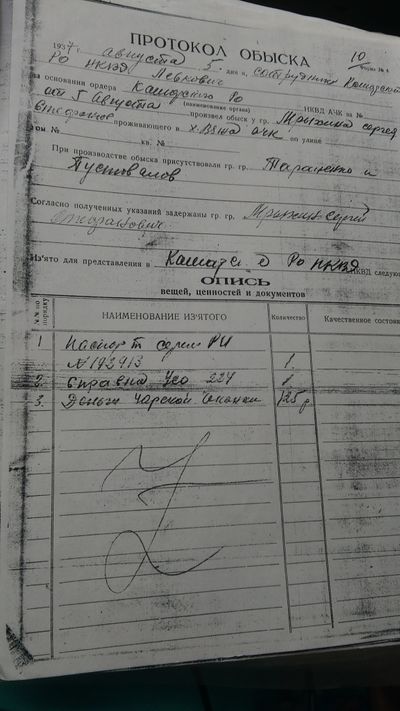 10
ПРОТОКОЛ ОБЫСКА
Форма № 4
1937 г. августа 5 дня я, сотрудник Кашарского
РО НКВД Левкович
на основании ордера Кашарского РО НКВД АЧК за №
(наименование органа)
от 5 Августа произвел обыск у гр. Мрыхина Сергея
проживающего в АЧК по улице
дом № кв. №
При производстве обыска присутствовали гр. гр. Тараненко и
Пустовалов
Согласно полученных указаний задержаны гр. гр. Мрыхин Сергей
Стефанович
Из'ято для представления в РО НКВД НКВД следующее
ОПИСЬ
вещей, ценностей и документов
№№ по порядку
НАИМЕНОВАНИЕ ИЗ'ЯТОГО
Количество
Качественное состоян
1 Паспорт серии РИ
1
2. Справка 224 1
3. Деньги Царской чеканки 125 р